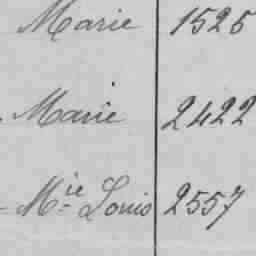 Marie 1525
Marie 2422
- Mie Louis 2557